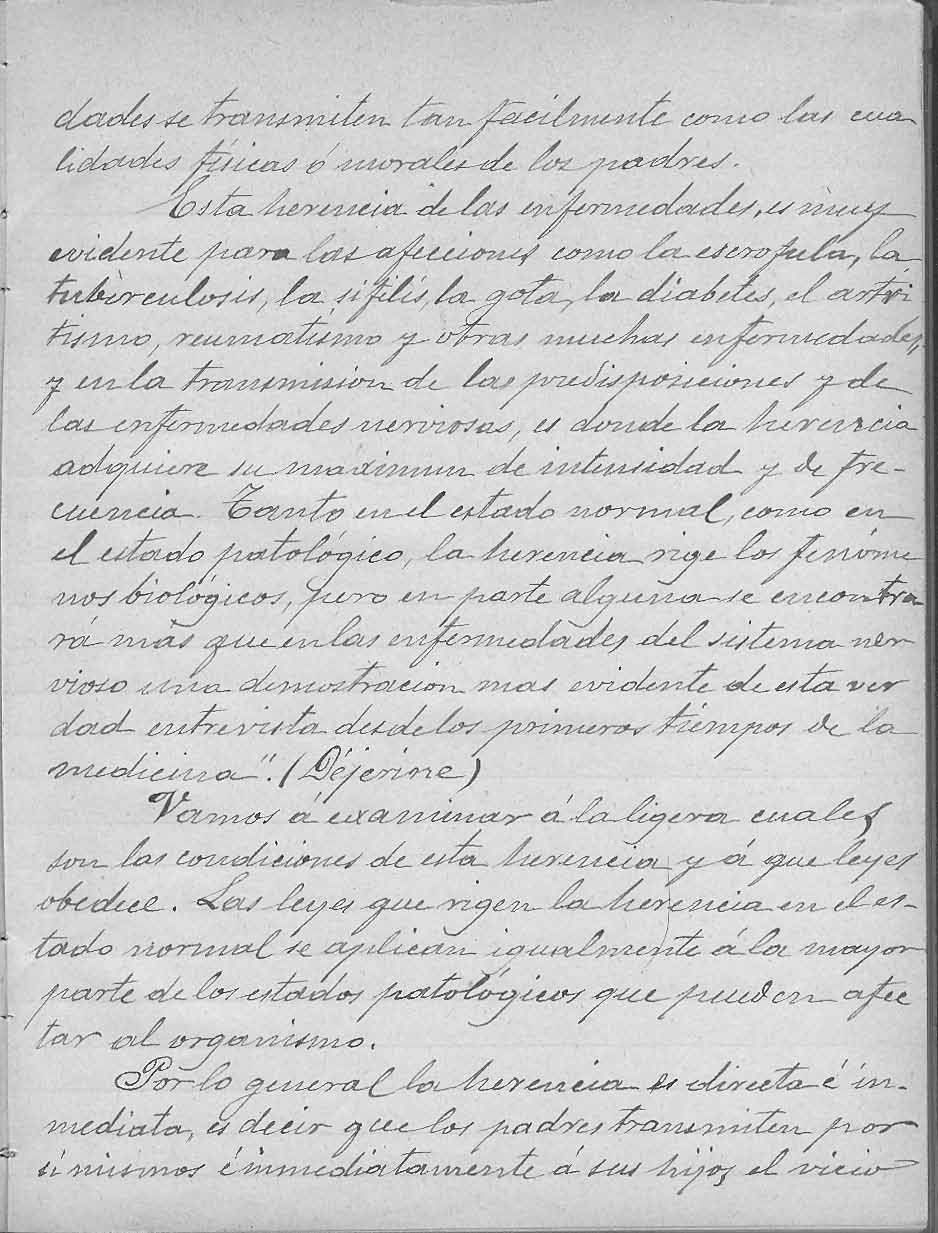 dades se transmiten tan fácilmente como las cua
lidades físicas ó morales de los padres.
Esta herencia de las enfermedades, es muy
evidente para las afecciones como la escrofula, la
tubérculosis, la sifilis, la gota, la diabetes, el artri
tismo, reumatismo y otras muchas enfermedades,
y en la transmision de las predisposiciones y de
las enfermedades nerviosas, es donde la herencia
adquiere su maximun de intensidad y de fre-
cuencia. Tanto en el estado normal, como en
el estado patológico, la herencia rige los fenóme
nos biológicos, pero en parte alguna se encontra
rá más que en las enfermedades del sistema ner
vioso una demostracion mas evidente de esta ver
dad entrevista desde los primeros tiempos de la
medicina". (Déjerine)
Vamos á examinar á la ligera cuales
son las condiciones de esta herencia y á que leyes
obedece. Las leyes que rigen la herencia en el es-
tado normal se aplican igualmente á la mayor
parte de los estados patológicos que pueden afec
tar al organismo.
Por lo general la herencia es directa é in-
mediata, es decir que los padres transmiten por
sí mismos é inmediatamente á sus hijos el vicio